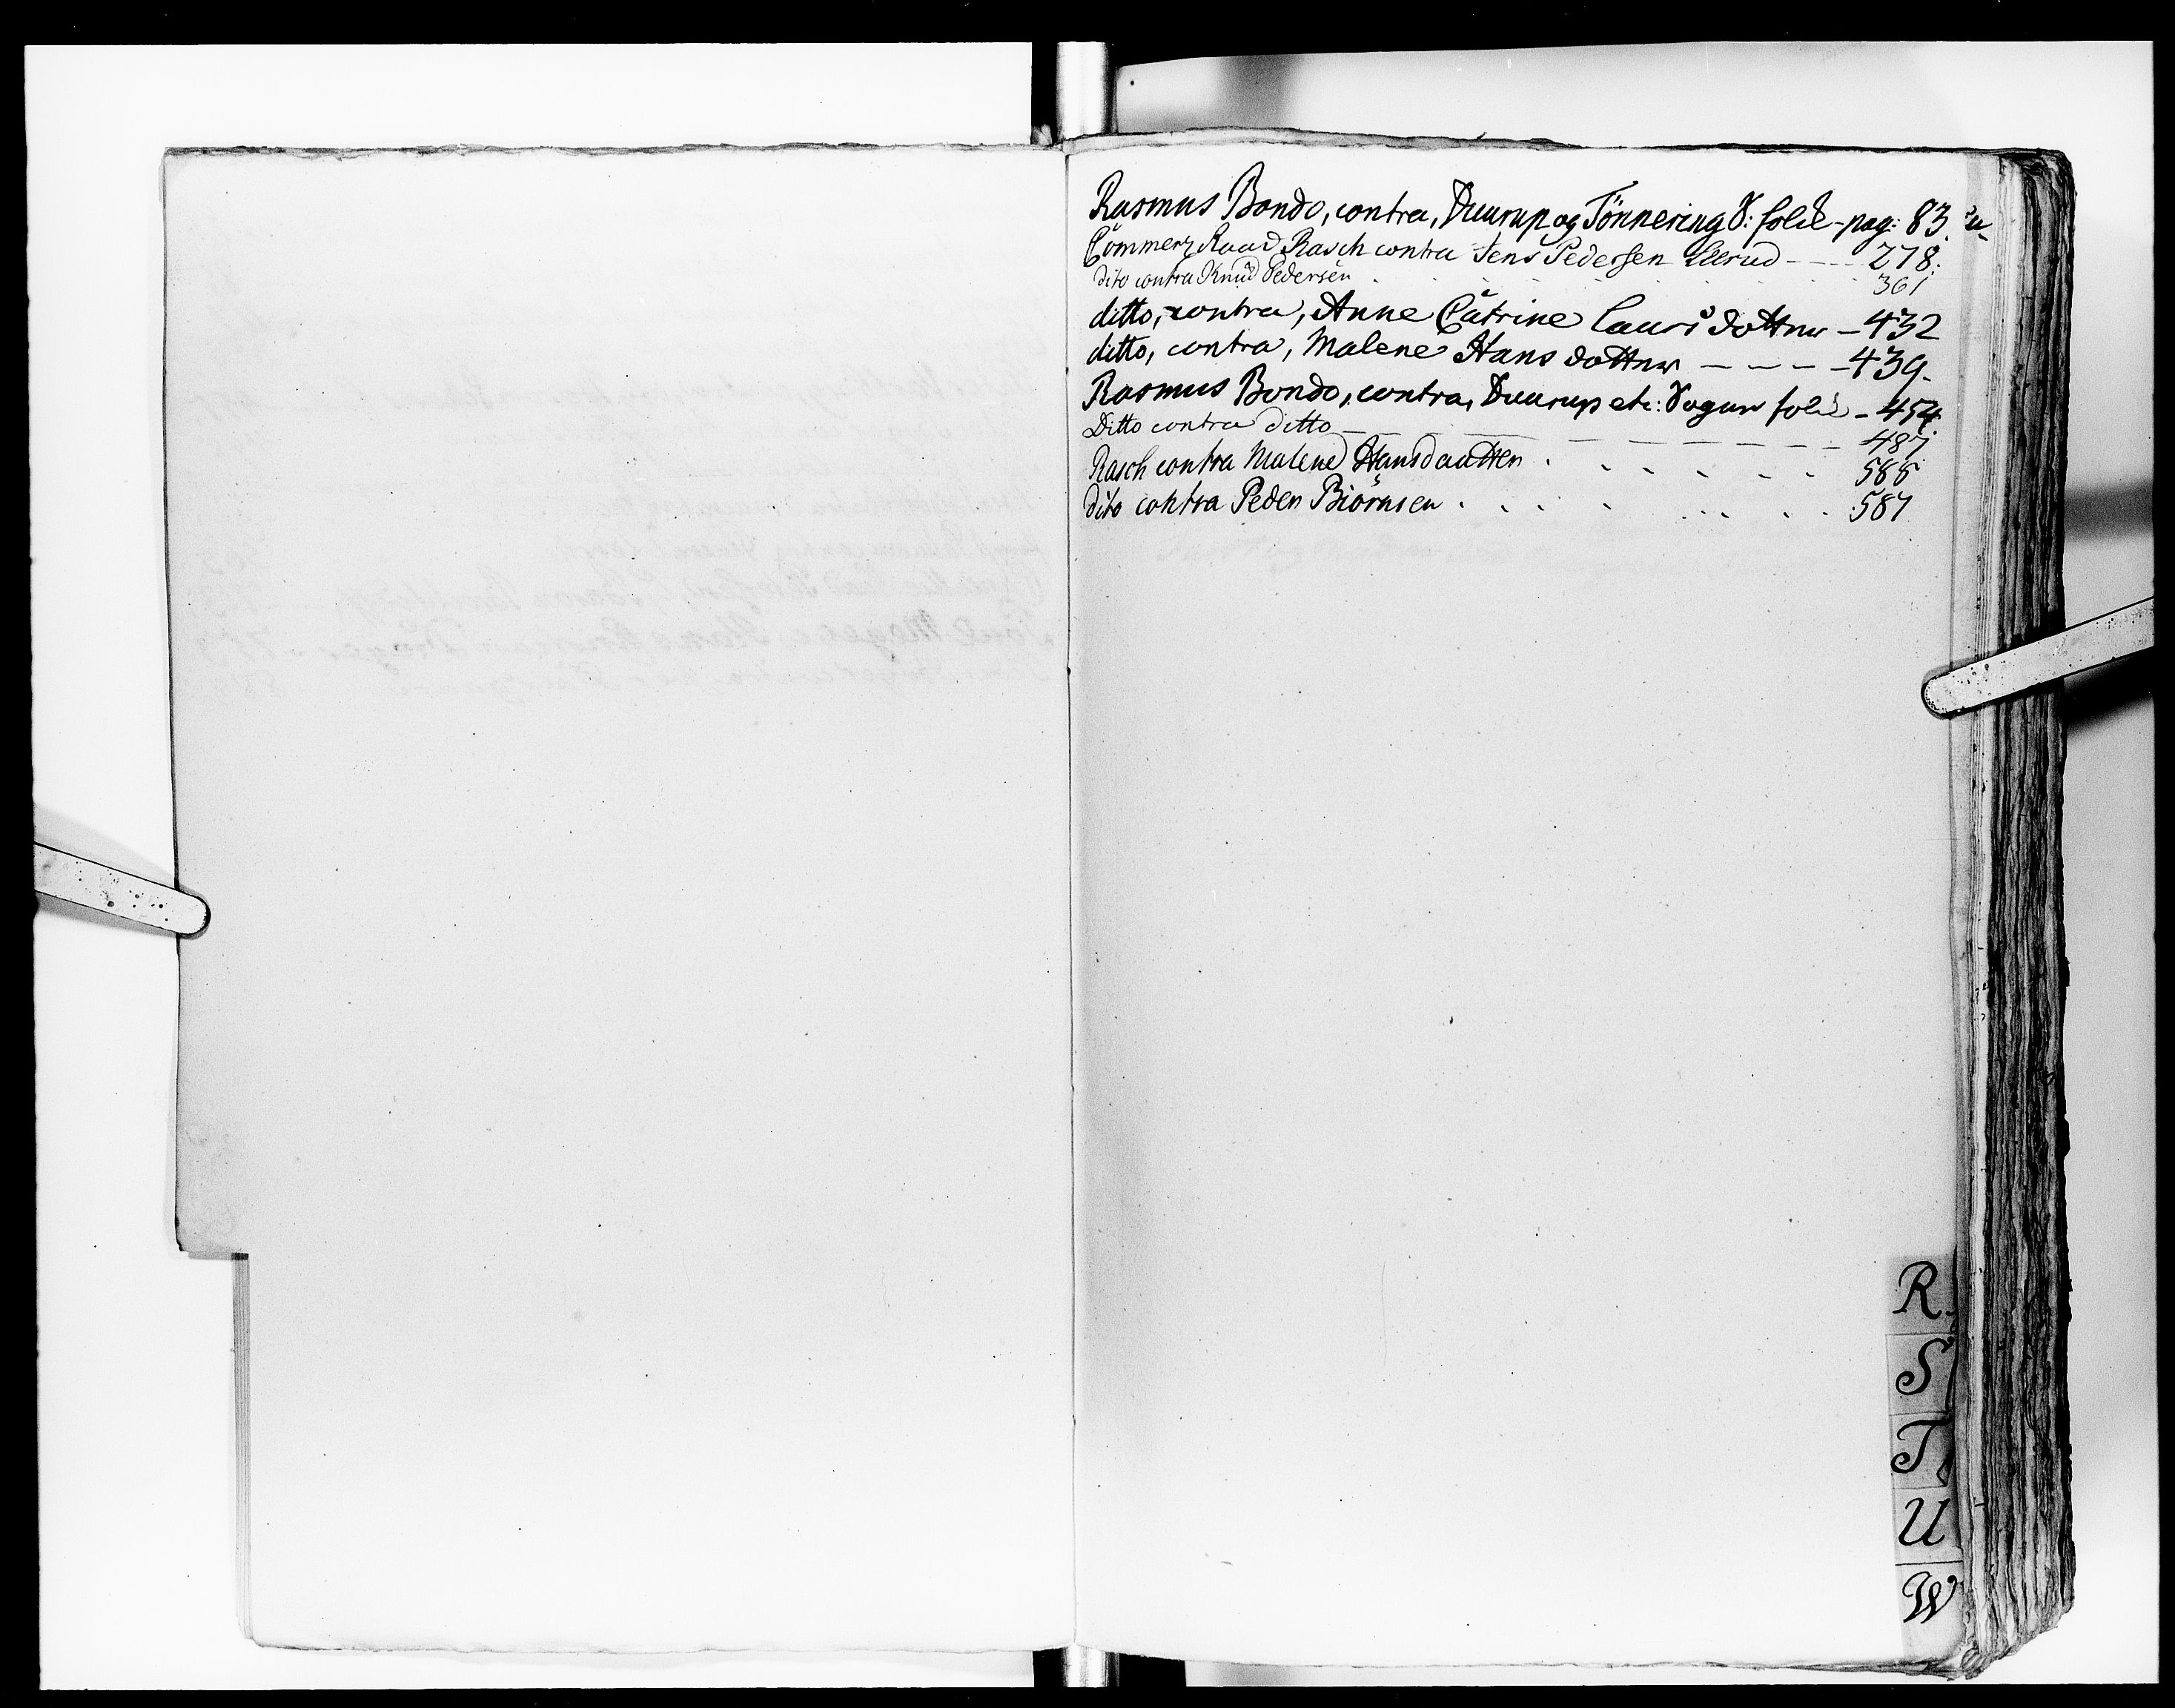 Rasmus Bondo, contra, Duurup og Tönnering S: folck - pag: 83.
Commerz Raad Rasch contra Jens Pedersen - - 278.
dito contra Knud Pedersen . . . . . 361
ditto, contra, Anne Catrine Laurs dotter - 432
ditto, contra, Malene Hans dotter - - - - 439.
Rasmus Bondo, contra, Duurup etc: Sogns folck - 454
Ditto contra ditto - - - - - - 487.
Rasch contra Malene Hansdaatter . . . . . . 585
dito contra Peder Biörnsen . . . . . . . 587
R.
S
T
U
W